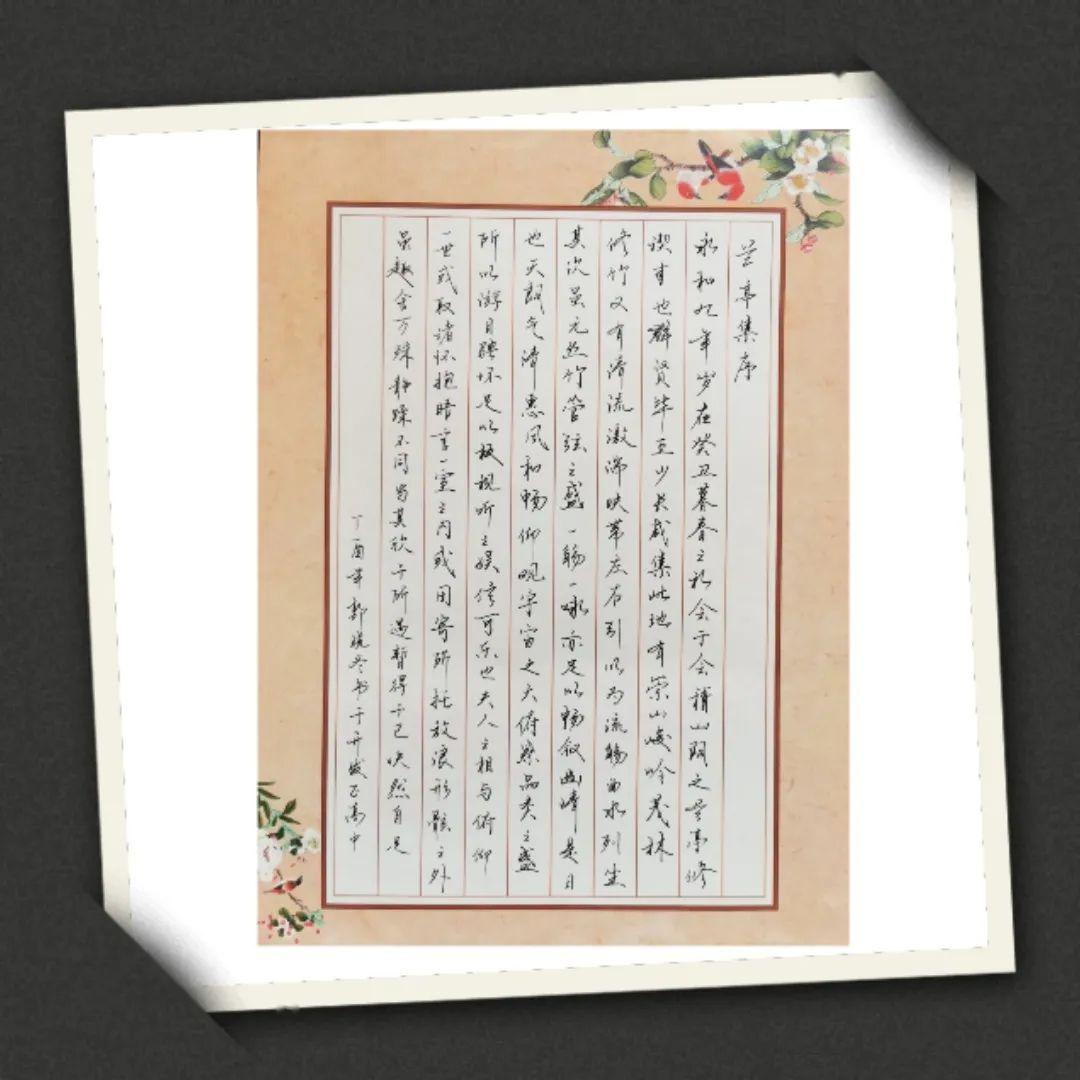 兰亭集序
永和九年岁在癸丑暮春之初会于会稽山阴之兰亭修
禊事也群贤毕至少长咸集此地有崇山峻岭茂林
修竹又有清流激湍映带左右引以为流觞曲水列坐
其次虽无丝竹管弦之盛一觞一咏亦足以畅叙幽情是日
也天朗气清惠风和畅仰观宇宙之大俯察品类之盛
所以游目骋怀足以极视听之娱信可乐也夫人之相与俯仰
一世或取诸怀抱晤言一室之内或因寄所托放浪形骸之外
虽趣舍万殊静躁不同当其欣于所遇暂得于己快然自足
丁酉年郭晓冬书于开发区高中